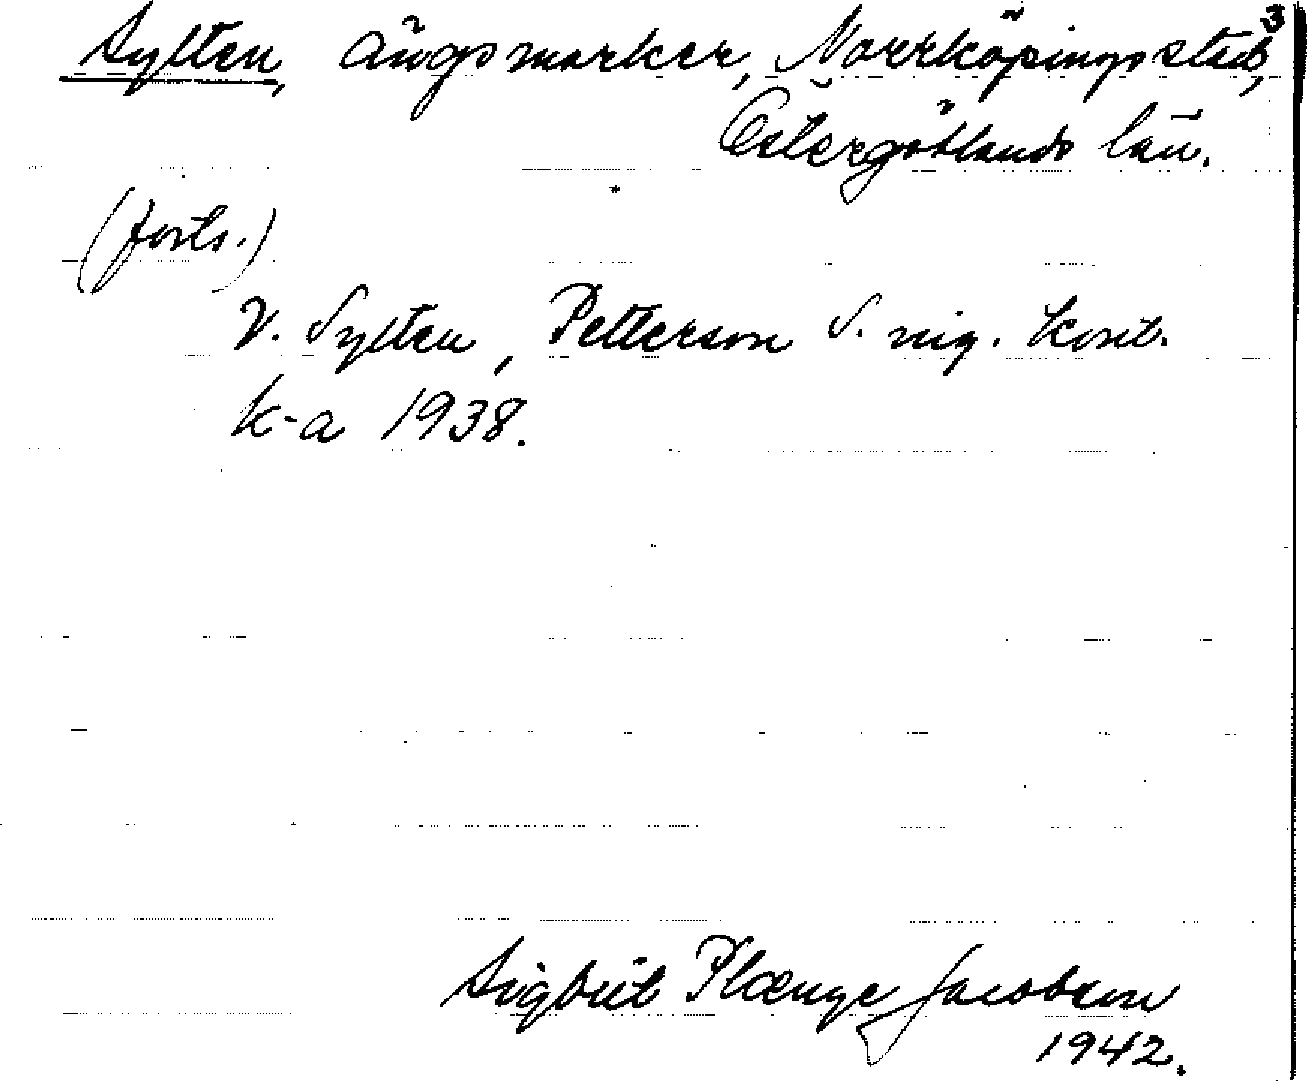 3
Sylten, ängsmarker, Norrköpings stad,
Östergötlands län.
(forts.)
V. Sylten, Petterson S. nig. kont.
k-a 1938.
Sigbrit Plænge Jacobson
1942.